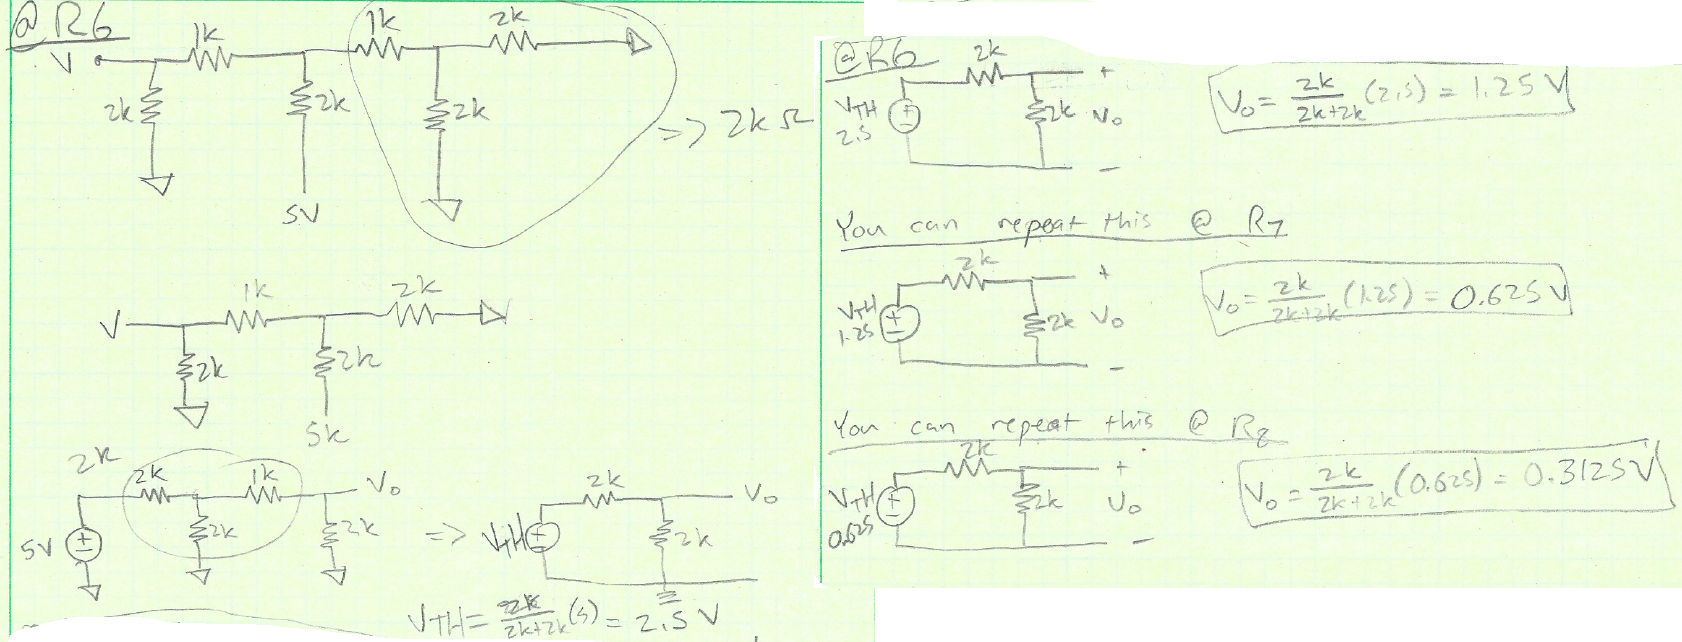 @ R6
1k
1k
2k
V
2k
2k
2k
=> 2k Ω
5V
1k
2k
V
2k
2k
5k
2k
2k
1k
Vo
5V
2k
2k
=>
2k
Vo
VTH
2k
VTH = 2k/2k+2k (5) = 2.5 V
@R6
2k
+
VTH
2.5
2k Vo
-
Vo = 2k/2k+2k (2.5) = 1.25 V
You can repeat this @ R7
2k
+
VTH
1.25
2k Vo
-
Vo = 2k/2k+2k (1.25) = 0.625 V
You can repeat this @ R8
2k
+
VTH
0.625
2k Vo
-
Vo = 2k/2k+2k (0.625) = 0.3125 V